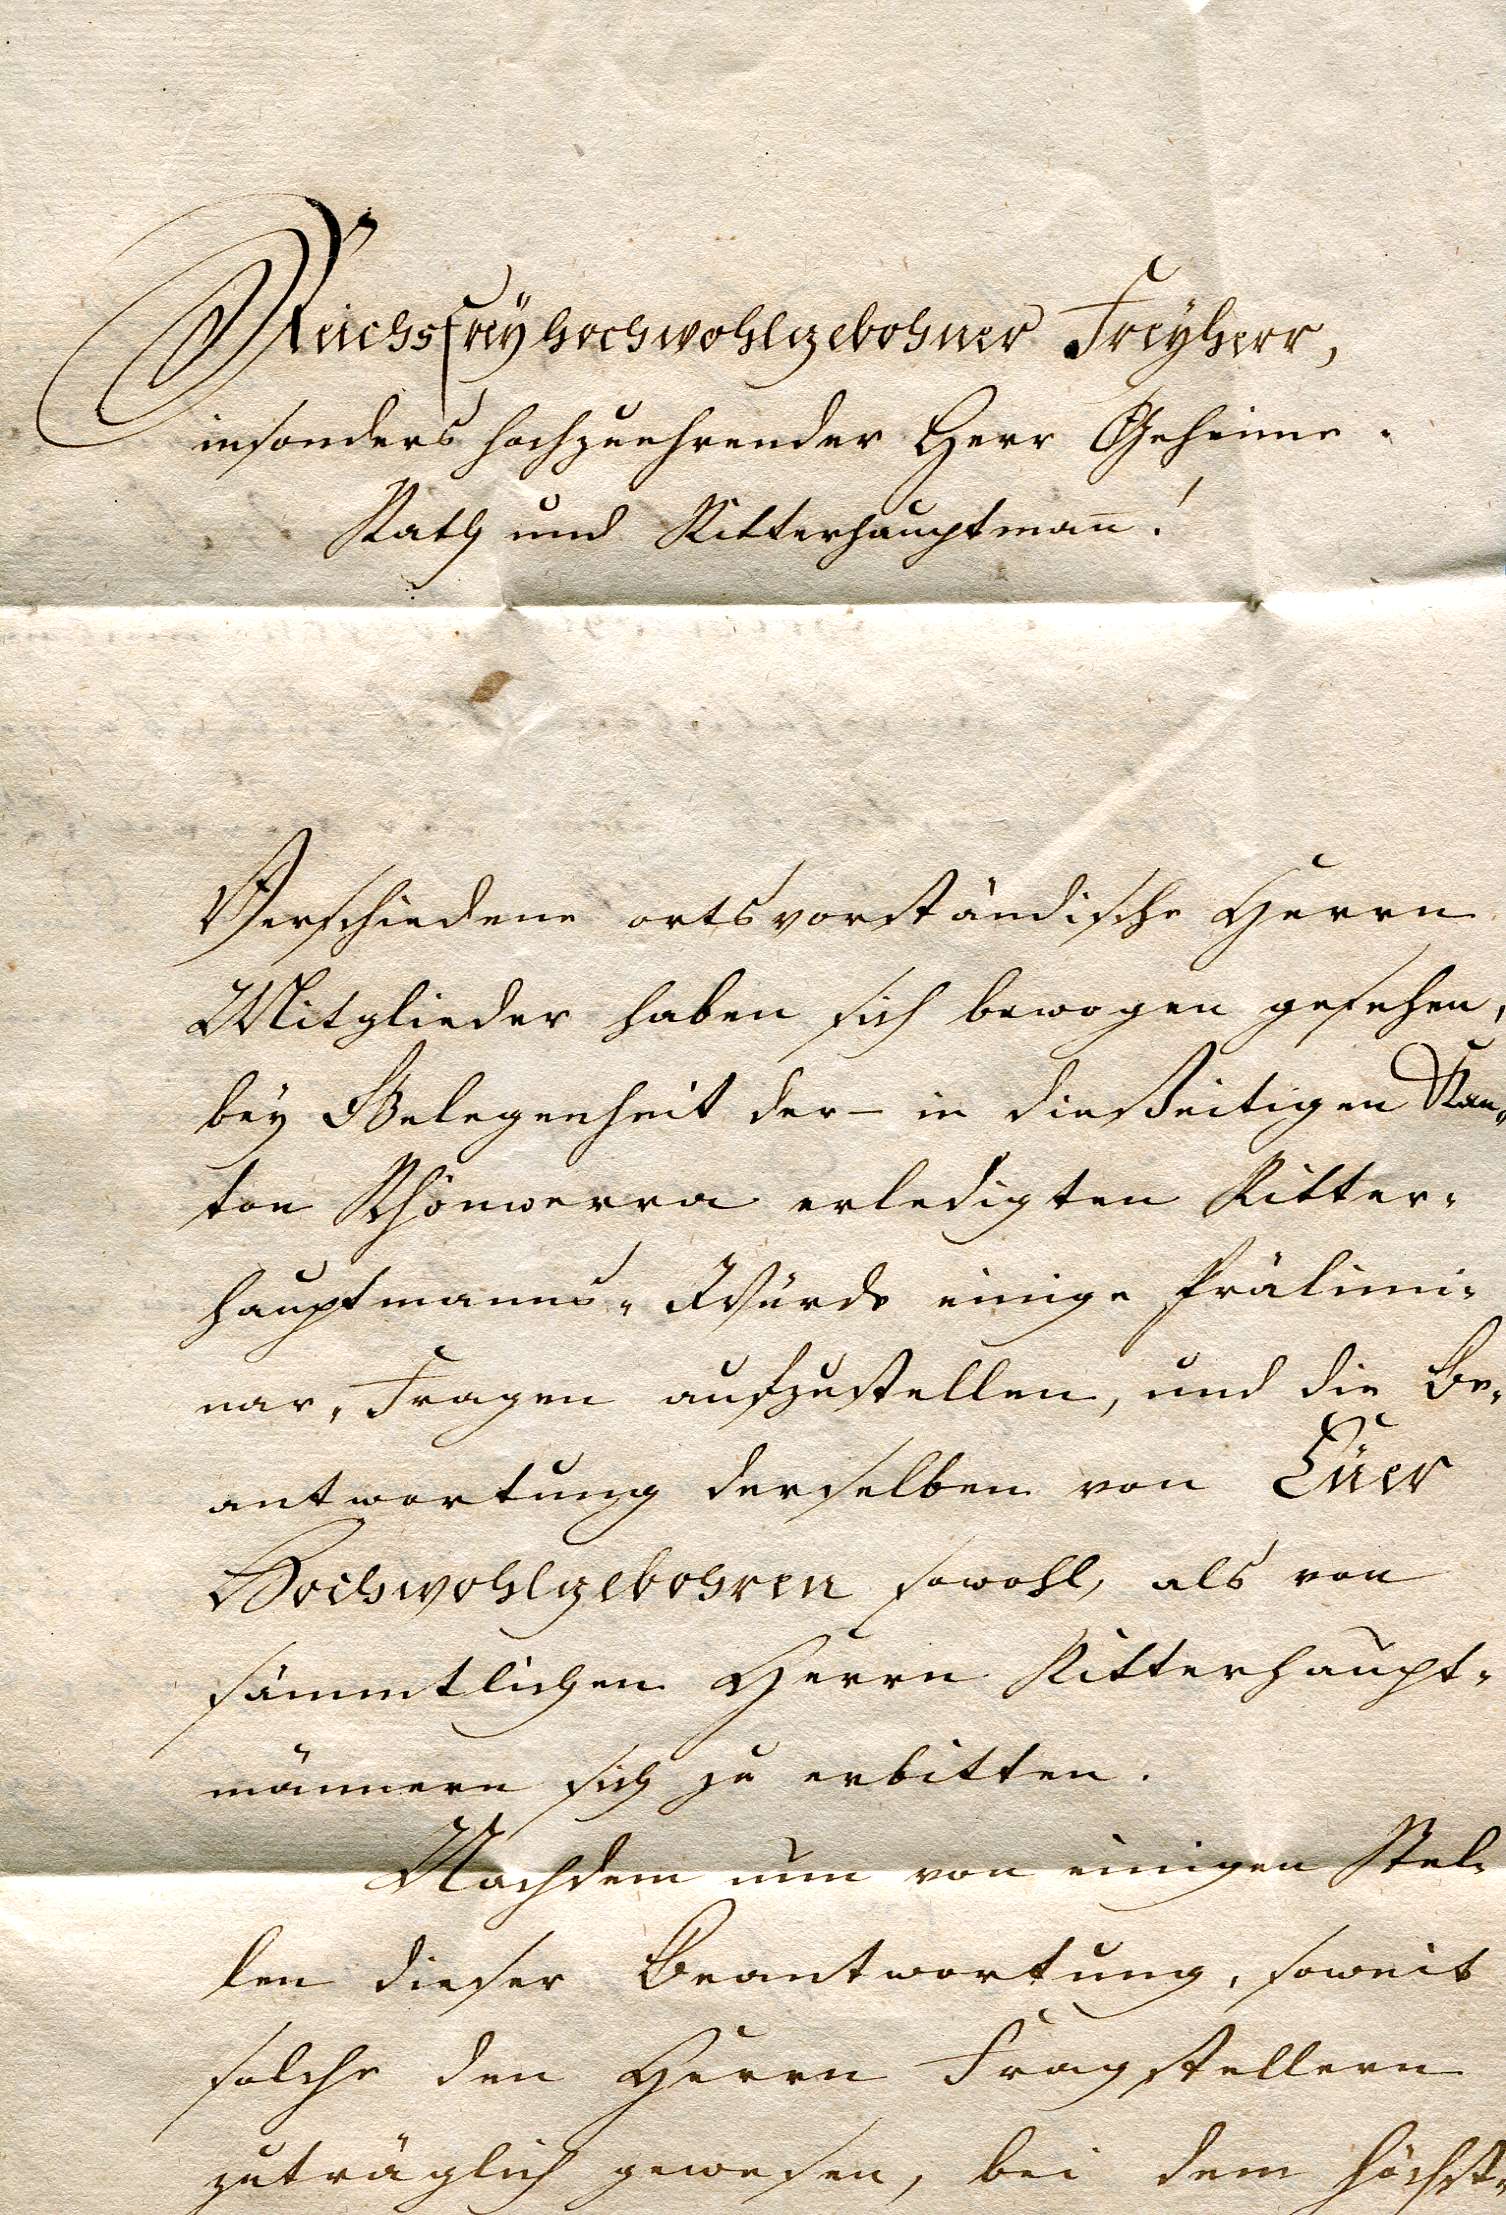 Reichsfreyhochwohlgebohner Freyherr,
insonders hochzuehrender Herr Geheime-
Rath und Ritterhauptmañ!
Verschiedene ortsvorständische Herrn
Mitglieder haben sich bewogen gesehen,
bey Gelegenheit der – in dießeitigen Kan-
ton Rhönwerra erledigten Ritter-
hauptmanns-Würde einige Prälimi-
nar-Fragen aufzustellen, und die Be-
antwortung derselben von Euer
Hochwohlgebohren sowohl, als von
sämmtlichen Herrn Ritterhaupt-
männern sich zu erbitten.
Nachdem nun von einigen Stel-
len dieser Beantwortung, soweit
solche den Herrn Fragstellern
zuträglich gewesen, bei dem höchst-